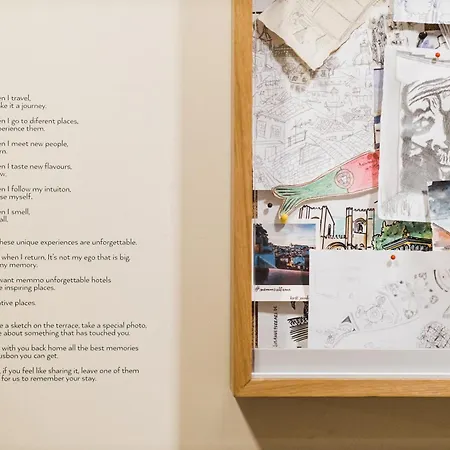 n I travel,
ke it a journey.
n I go to diferent places,
perience them.
n I meet new people,
rn.
n I taste new flavours,
w.
n I follow my intuiton,
se myself.
n I smell,
all.
hese unique experiences are unforgettable.
when I return, It's not my ego that is big.
my memory.
want memmo unforgettable hotels
e inspiring places.
ative places.
e a sketch on the terrace, take a special photo,
e about something that has touched you.
with you back home all the best memories
usbon you can get.
, if you feel like sharing it, leave one of them
for us to remember your stay.